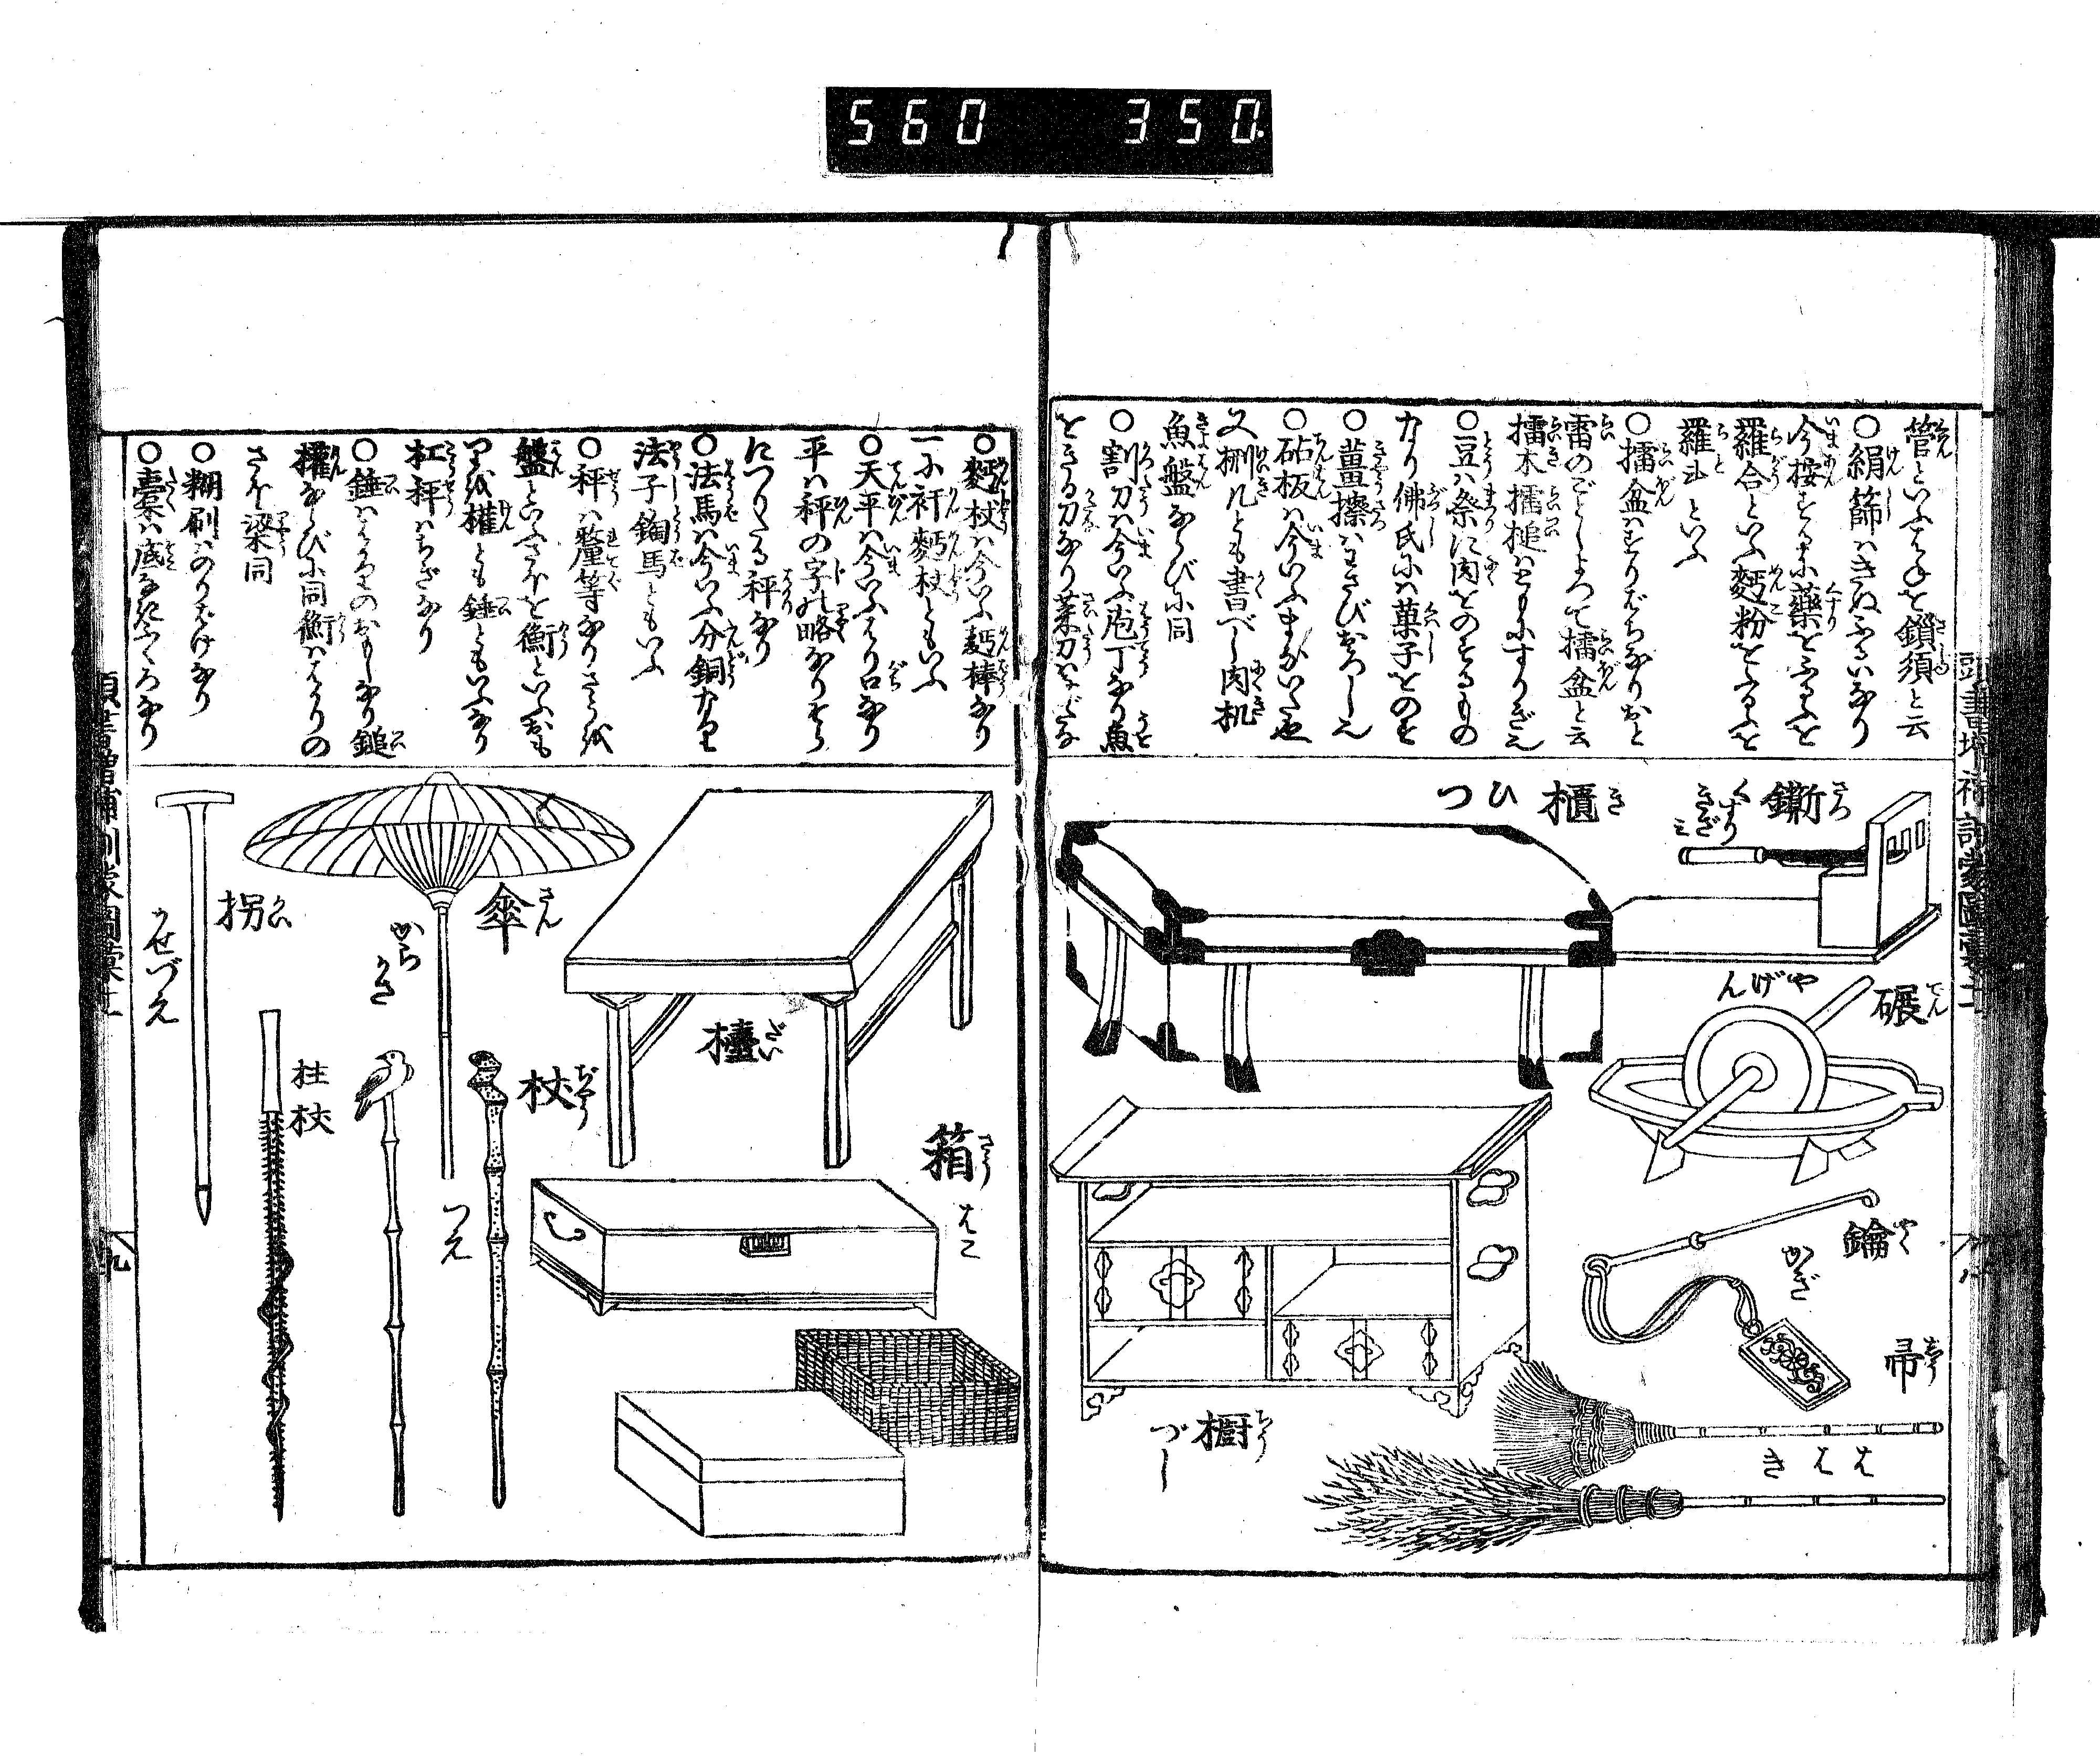 560 350.
管といふはねを鎖須と云
○絹篩はきぬふるいなり
今按ずるに藥をふるふを
羅合といふ麪粉をふるふを
羅斗といふ
○擂盆はすりばちなりおと
雷のごとしよつて擂盆と云
擂木擂槌はともにすりぎ也
○豆は祭に肉をのするもの
なり佛氏には菓子をのす
○薑擦はわさびおろし也
○砧板は今いふまないた也
又棚几とも書べし肉机
魚盤ならびに同
○割刀は今いふ庖丁なり魚
をきる刀なり菜刀は
鐁 さつ
くすりきざみ
櫃 き
ひつ
碾 てん
やげん
鑰 やく
かぎ
帚
ははき
櫥 ちう
づし
○麪杖は今いふ麪棒なり
一に衦麪杖ともいふ
○天平は今いふはり口なり
平は秤の字の略なり
につりたる秤なり
○法馬は今いふ分銅なり
法子銅馬ともいふ
○秤は釐等なりさらを
盤といふさほを衡といふおも
りを權とも錘ともいふなり
杠秤はちぎなり
○錘ははかりのおもしなり鎚
權ならびに同衡ははかりの
さほ梁同
○糊刷はのりばけなり
○橐は底なきふくろなり
檯 だい
箱 さう
はこ
傘 さん
からかさ
杖 ぢやう
つえ
拄杖
拐 くわい
かせづえ
頭書増補訓蒙圖彙
九